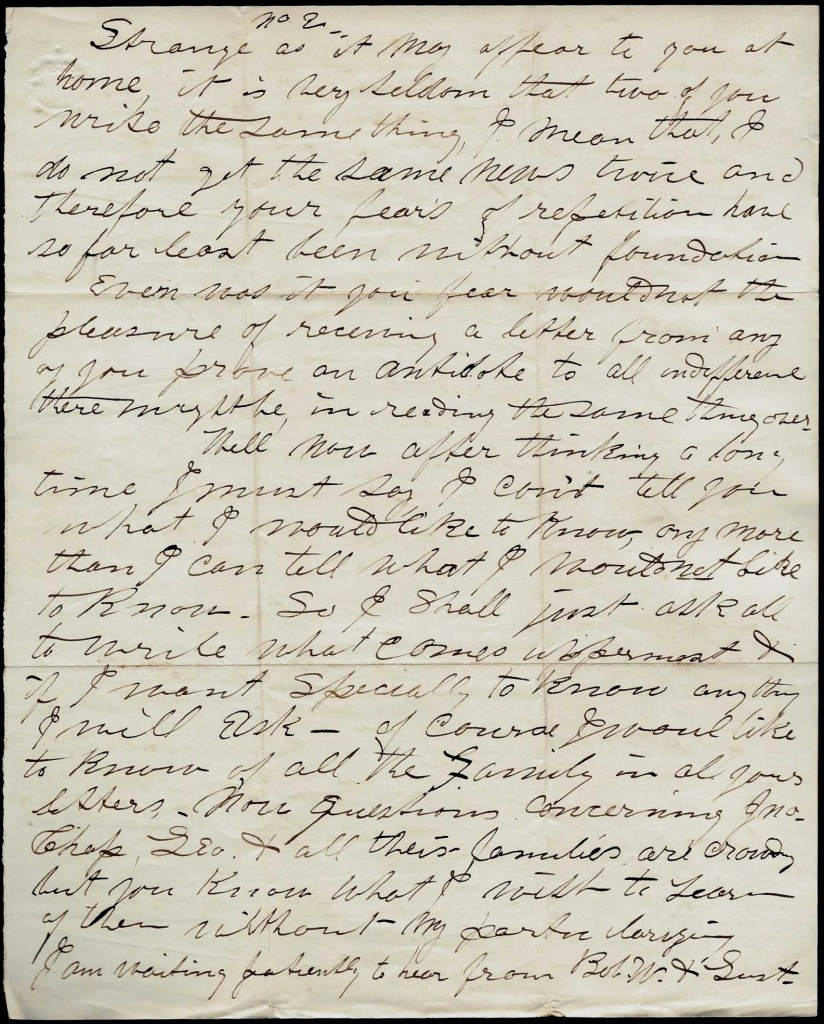 No 2.
Strange as it may appear to you at
home, it is very seldom that two of you
write the same thing, I mean that, I
do not get the same news twice and
therefore your fears of repetition have
so far least been without foundation
Even was it you fear would not the
pleasure of receiving a letter from any
of you prove an antidote to all indifference
there might be, in reading the same thing over-
Well now after thinking a long
time I must say, I can't tell you
what I would like to know, any more
than I can tell what I would not like
to know - So I shall just ask all
to write what comes uppermost &
if I want specially to know anything
I will ask - of course I would like
to know of all the family in all your
letters - Now questions concerning Jno-
Chap, Geo. & all their families are crowdg
but you know what I wish to learn
of them without my particularizing
I am waiting patiently to hear from Bob. W. & Gust-